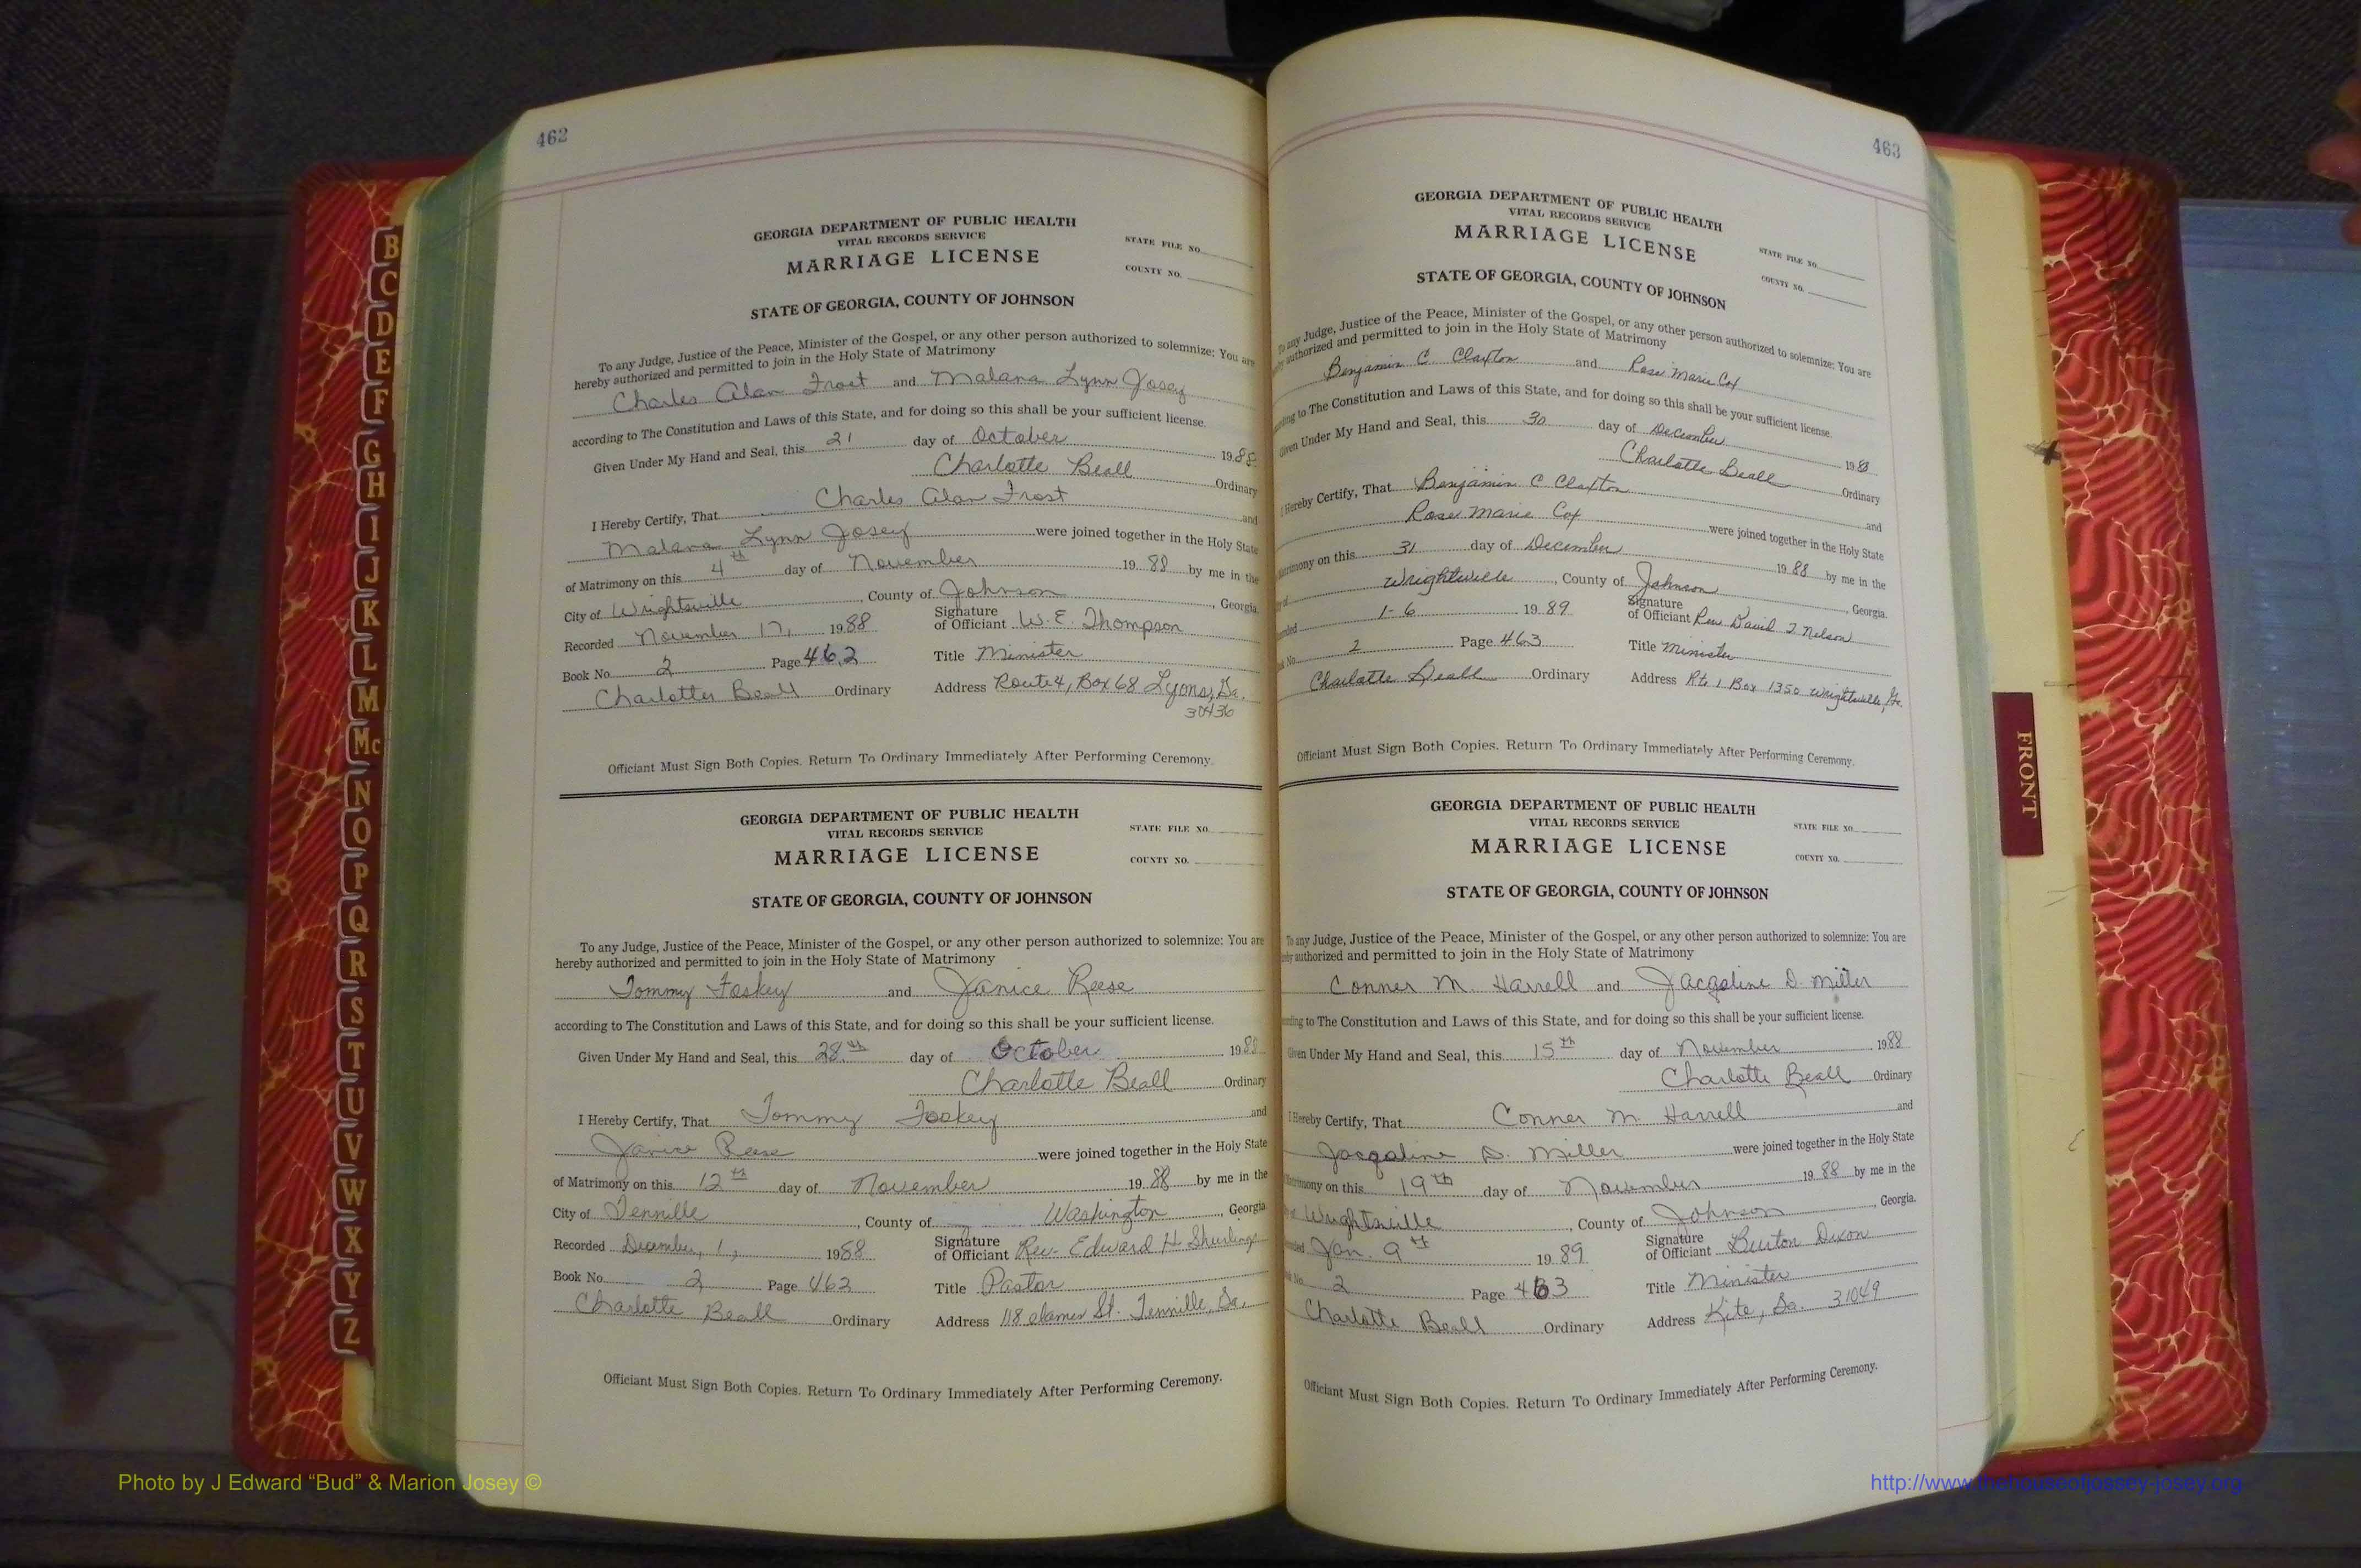 462
GEORGIA DEPARTMENT OF PUBLIC HEALTH
VITAL RECORDS SERVICE
MARRIAGE LICENSE
STATE FILE NO.
COUNTY NO.
STATE OF GEORGIA, COUNTY OF JOHNSON
To any Judge, Justice of the Peace, Minister of the Gospel, or any other person authorized to solemnize: You are
hereby authorized and permitted to join in the Holy State of Matrimony
Charles Alan Frost and Malana Lynn Josey
according to The Constitution and Laws of this State, and for doing so this shall be your sufficient license.
Given Under My Hand and Seal, this 21 day of October 1988
Charlotte Beall Ordinary
I Hereby Certify, That Charles Alan Frost and
Malana Lynn Josey were joined together in the Holy State
of Matrimony on this 4th day of November 1988 by me in the
City of Wrightsville, County of Johnson, Georgia.
Recorded November 17, 1988 Signature of Officiant W. E. Thompson
Book No. 2 Page 462 Title Minister
Charlotte Beall Ordinary Address Route 4, Box 68 Lyons, Ga.
30436
Officiant Must Sign Both Copies. Return To Ordinary Immediately After Performing Ceremony.
GEORGIA DEPARTMENT OF PUBLIC HEALTH
VITAL RECORDS SERVICE
MARRIAGE LICENSE
STATE FILE NO.
COUNTY NO.
STATE OF GEORGIA, COUNTY OF JOHNSON
To any Judge, Justice of the Peace, Minister of the Gospel, or any other person authorized to solemnize: You are
hereby authorized and permitted to join in the Holy State of Matrimony
Tommy Foskey and Janice Reese
according to The Constitution and Laws of this State, and for doing so this shall be your sufficient license.
Given Under My Hand and Seal, this 28th day of October 1988
Charlotte Beall Ordinary
I Hereby Certify, That Tommy Foskey and
Janice Reese were joined together in the Holy State
of Matrimony on this 12th day of November 1988 by me in the
City of Tennille, County of Washington, Georgia
Recorded December, 1, 1988 Signature of Officiant Rev. Edward H.
Book No. 2 Page 462 Title Pastor
Charlotte Beall Ordinary Address 118 St. Tennille, Ga.
Officiant Must Sign Both Copies. Return To Ordinary Immediately After Performing Ceremony.
463
GEORGIA DEPARTMENT OF PUBLIC HEALTH
VITAL RECORDS SERVICE
MARRIAGE LICENSE
STATE FILE NO.
COUNTY NO.
STATE OF GEORGIA, COUNTY OF JOHNSON
To any Judge, Justice of the Peace, Minister of the Gospel, or any other person authorized to solemnize: You are
authorized and permitted to join in the Holy State of Matrimony
Benjamin C Claxton and Rose Marie Cox
to The Constitution and Laws of this State, and for doing so this shall be your sufficient license.
Given Under My Hand and Seal, this 30 day of December 1988
Charlotte Beall Ordinary
I Hereby Certify, That Benjamin C Claxton and
Rose Marie Cox were joined together in the Holy State
on this 31 day of December 1988 by me in the
Wrightsville, County of Johnson, Georgia.
1-6 1989 Signature of Officiant Rev David T Nelson
2 Page 463 Title Minister
Charlotte Beall Ordinary Address Rt. 1 Box 1350 Wrightsville, Ga.
Officiant Must Sign Both Copies. Return To Ordinary Immediately After Performing Ceremony.
GEORGIA DEPARTMENT OF PUBLIC HEALTH
VITAL RECORDS SERVICE
MARRIAGE LICENSE
STATE FILE NO.
COUNTY NO.
STATE OF GEORGIA, COUNTY OF JOHNSON
To any Judge, Justice of the Peace, Minister of the Gospel, or any other person authorized to solemnize: You are
authorized and permitted to join in the Holy State of Matrimony
Conner M. Harrell and Jacqaline D. Miller
to The Constitution and Laws of this State, and for doing so this shall be your sufficient license.
Given Under My Hand and Seal, this 15th day of November 1988
Charlotte Beall Ordinary
I Hereby Certify, That Conner M. Harrell and
Jacqaline D. Miller were joined together in the Holy State
on this 19th day of November 1988 by me in the
Wrightsville, County of Johnson, Georgia.
Jan. 9th 1989 Signature of Officiant Burton Dixon
2 Page 463 Title Minister
Charlotte Beall Ordinary Address Kite, Ga. 31049
Officiant Must Sign Both Copies. Return To Ordinary Immediately After Performing Ceremony.
B
C
D
E
F
G
H
I
J
K
L
M
Mc
N
O
P
Q
R
S
T
U
V
W
X
Y
Z
FRONT
Photo by J Edward “Bud” & Marion Josey ©
http://www.thehouseofjossey-josey.org